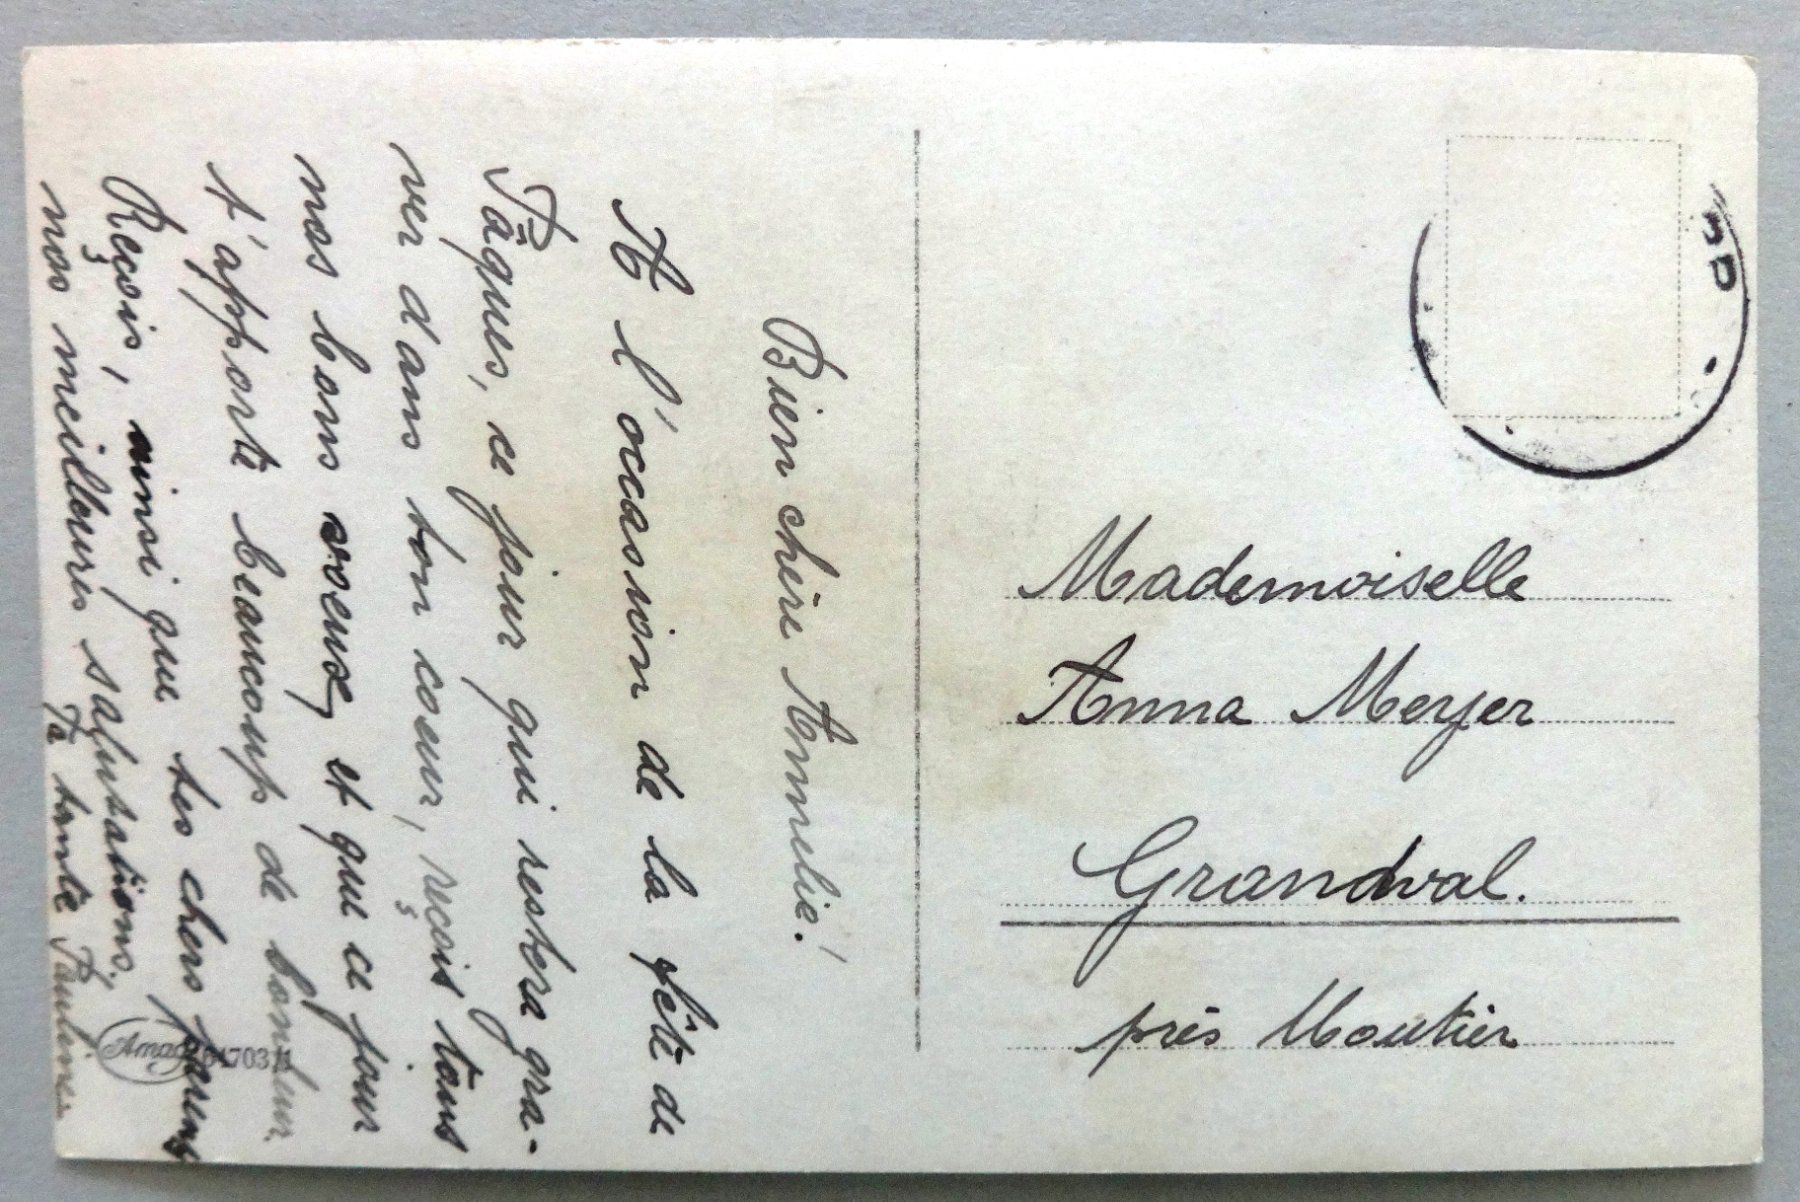 Bien chère Annulie!
A l'occasion de la fête de
Pâques, ce jour qui restera gra-
ver dans ton coeur, reçois tous
nos bons voeux et que ce jour
t'apporte beaucoup de bonheur
Reçois, ainsi que tes chers parents
nos meilleures salutations.
Ta tante Pauline
Mademoiselle
Anna Meyer
Grandval.
près Moutier